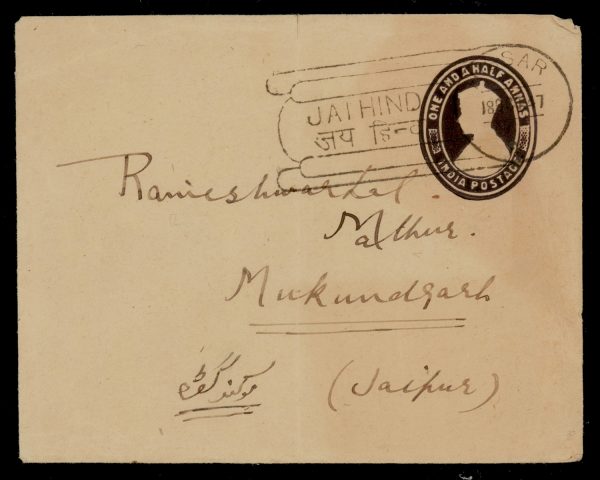 SAR
JAI HIND
जय हिन्द
ONE AND A HALF ANNAS
INDIA POSTAGE
Rameshwarlal.
Mathur.
Mukundgarh
(Jaipur)
موکندگڑھ